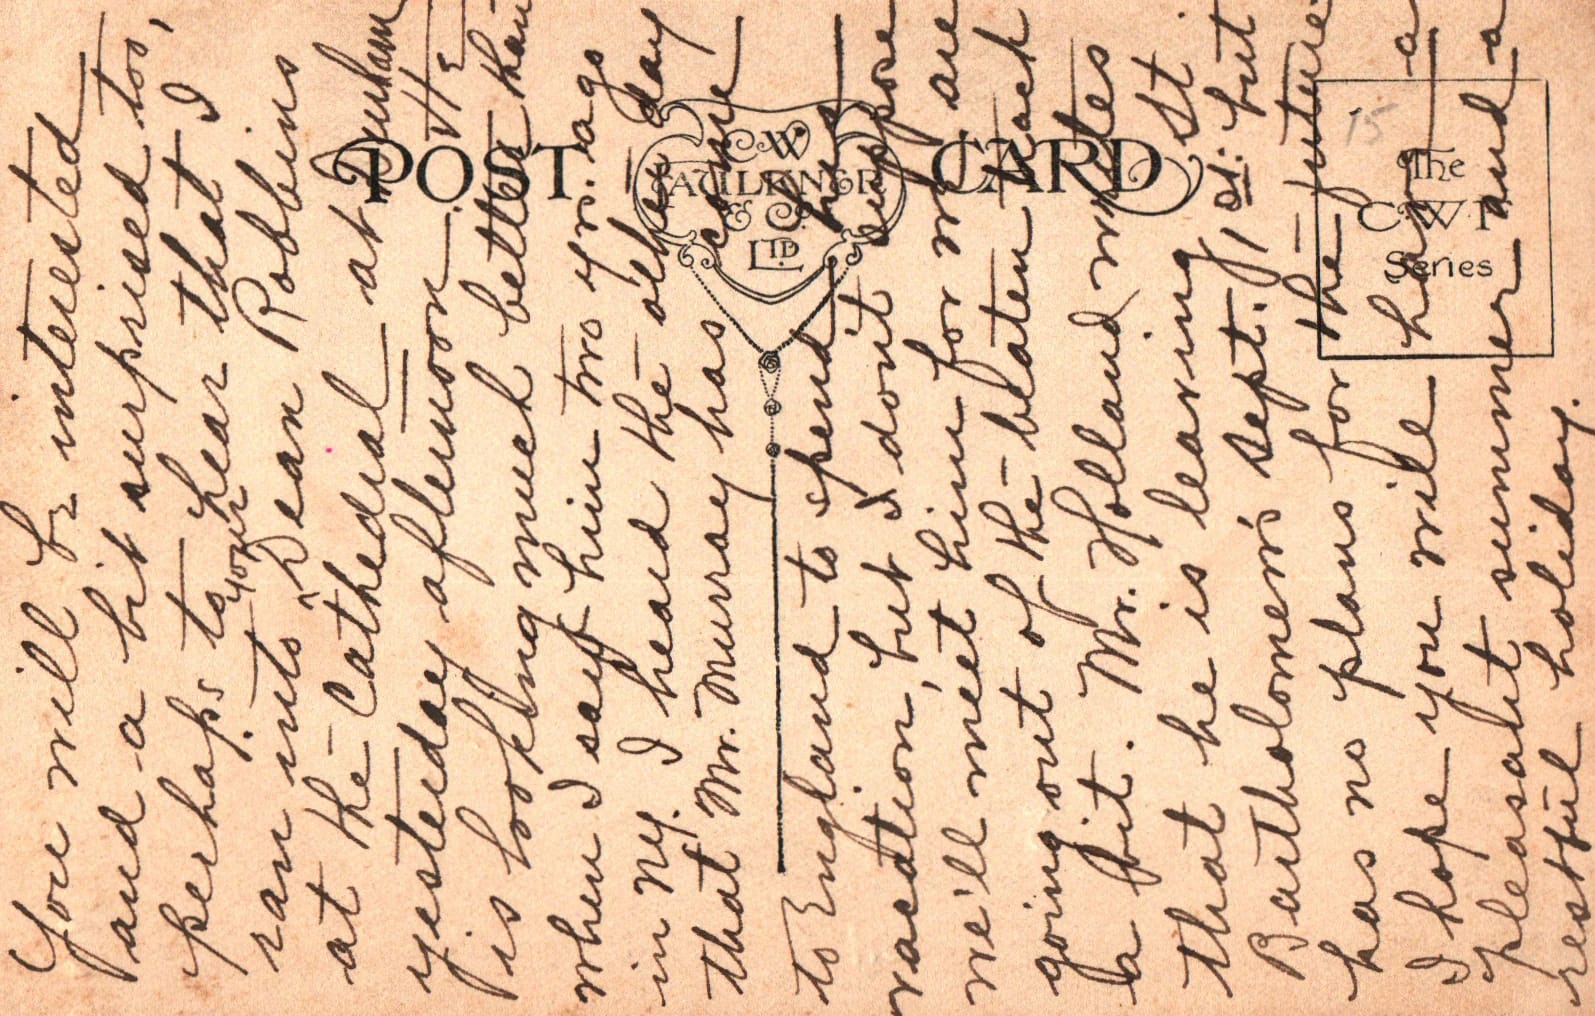 POST CARD
C.W.
FAULKNER
& Co.
LTD.
The
C.W.F
Series
15
You will be interested
and a bit surprised too,
perhaps to hear that I
ran into your Dean Robbins
at the Cathedral at Durham
yesterday afternoon. He
is looking much better than
when I saw him two yrs. ago
in N.Y. I heard the other day
that Mr. Murray has come
to England to spend his
vacation, but I don't suppose
we'll meet him for we are
going out of the beaten track
a bit. Mr. Holland writes
that he is leaving St
Bartholomew's Sept. 1st. but
has no plans for the future.
I hope you will have a
pleasant summer and a
restful holiday.